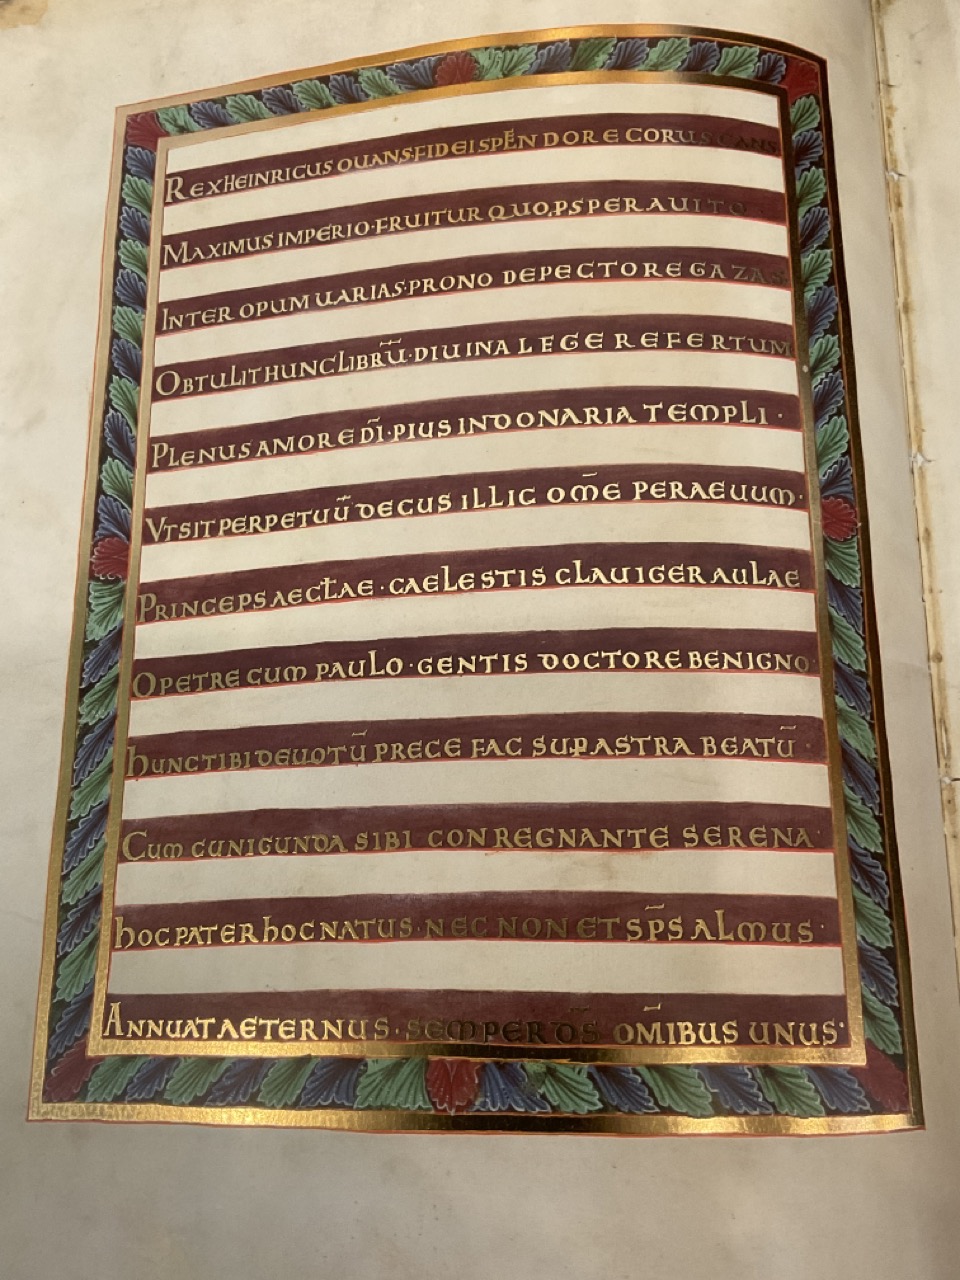 REX HEINRICUS OUANS·FIDEI SPLENDORE CORUSCANS
MAXIMUS IMPERIO·FRUITUR QUO PSPER AUITO
INTER OPUM UARIAS·PRONO DE PECTORE GAZAS
OBTULIT HUNC LIBRŪ·DIUINA LEGE REFERTUM
PLENUS AMORE DĪ·PIUS IN DONARIA TEMPLI·
VT SIT PERPETUŪ DECUS ILLIC OM̄E PER AEUUM·
PRINCEPS AECLAE·CAELESTIS CLAUIGER AULAE
O PETRE CUM PAULO·GENTIS DOCTORE BENIGNO·
hUNC TIBI DEUOTŪ PRECE FAC SUP ASTRA BEATŪ·
CUM CUNIGUNDA SIBI CONREGNANTE SERENA·
hOC PATER hOC NATUS·NEC NON ET SP̄S ALMUS·
ANNUAT AETERNUS·SEMPER DS̄ OM̄IBUS UNUS·